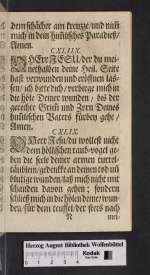 dem schächer am kreutze/und nim
mich in dein himlisches Paradeiß/
Amen.
CXLIIX.
O HErr JESU/ der du mei-
nethalben deine Heil. Seite
hast verwunden und eröffnen las-
sen/ ich bitte dich/ verbirge mich in
die höle Deiner wunden/ bis der
gerechte Eifer und Zorn Deines
himlischen Vaters fürbey gehe/
Amen.
CXLIX.
O Herr Jesu/ du wollest nicht
dem höllischen raub-vogel ge-
ben die sele deiner armen turtel-
täublein/ gedencke an deinen tod und
blutige wunden/ laß mich nicht mit
schanden davon gehen; sondern
schließ mich in die hölen deiner wun-
den/ für dem teuffel/ der stets nach
N
Herzog August Bibliothek Wolfenbüttel